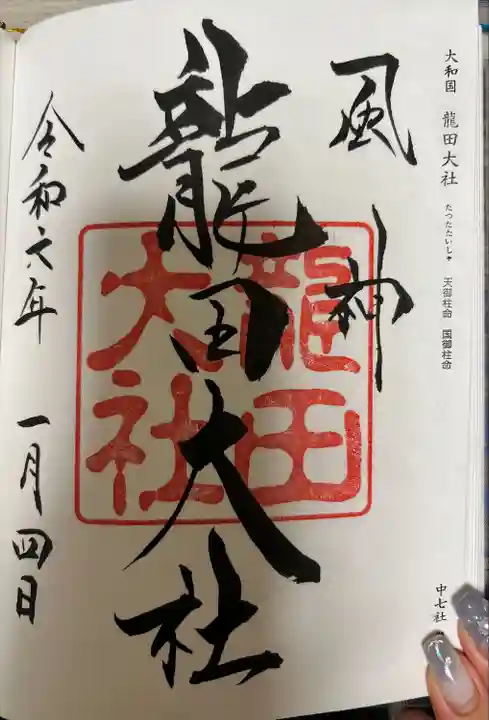 大和国 龍田大社 たつたたいしゃ 天御柱命 国御柱命
中七社
風神
龍田大社
龍田
大社
令和六年 一月四日